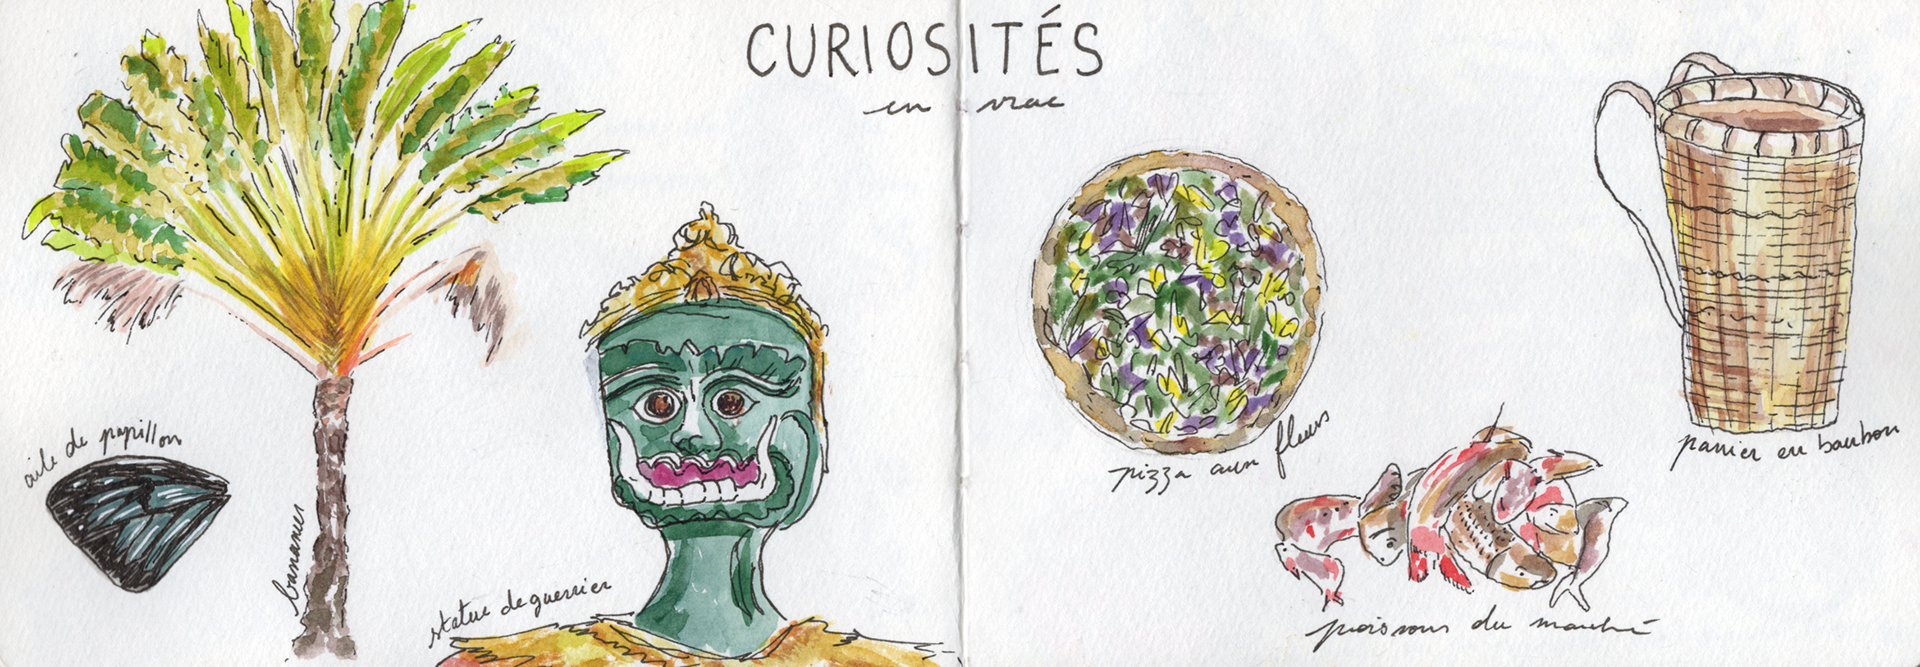 CURIOSITÉS
en vrac
aile de papillon
bananier
statue de guerrier
pizza aux fleurs
poissons du marché
panier en bambou